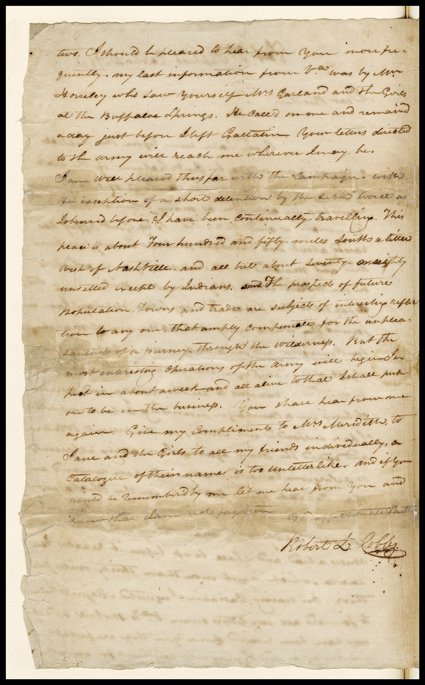 two. I should be pleased to hear from you more fre-
quently. my last information from Va. was by Mr
Housley who saw yourself Mrs Garland and the Girls
at the Buffaloe Springs. He call'd on me and remain'd
a day just before I left Gallatin. Your letters directed
to the army will reach me wherever I may be.
I am well pleased thus far with the Campaign. with
exception of a short detention by the
before, I have been continually travelling. This
place is about Four hundred and fifty miles South a little
West of Nashville. and all but about Seventy or eighty
unsettled except by Indians. The prospects of future
Population, Towns and trade are subjects of interesting reflec
tion to any one, that amply compensate for the unplea-
santness of a journey through the wilderness. But the
most interesting operations of the army will begin I ex
pect in about a week and all alive to that I shall push
on to be in the business. You shall hear from me
again. Give my Compliments to Mrs Meredith, to
Jane and the Girls to all my friends individually, a
Catalogue of their names is too unletterlike. And if you
would be remembered by me let me hear from you and
know that
Robert L. Cobbs